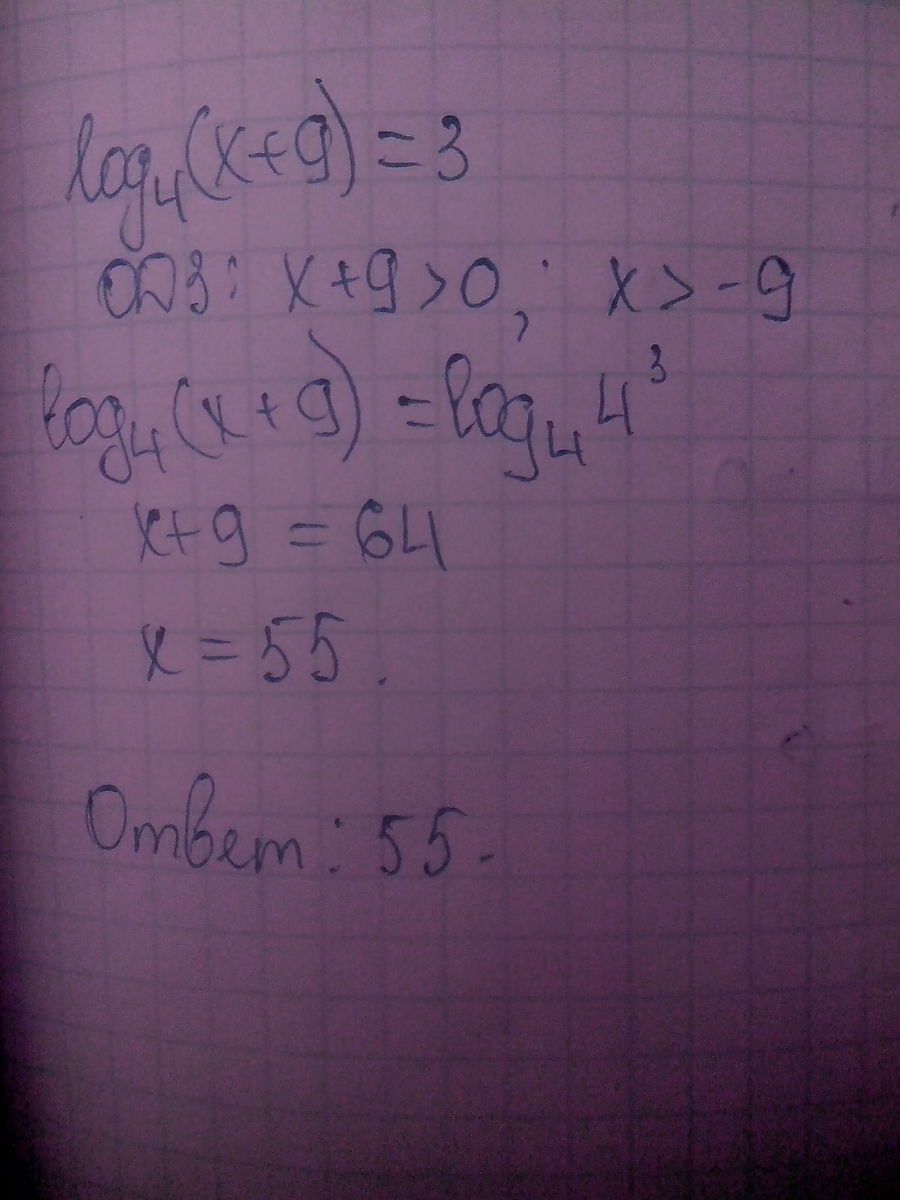 log₄(x+9)=3
ОДЗ: x+9>0; x>-9
log₄(x+9)=log₄4³
x+9=64
x=55.
Ответ: 55.